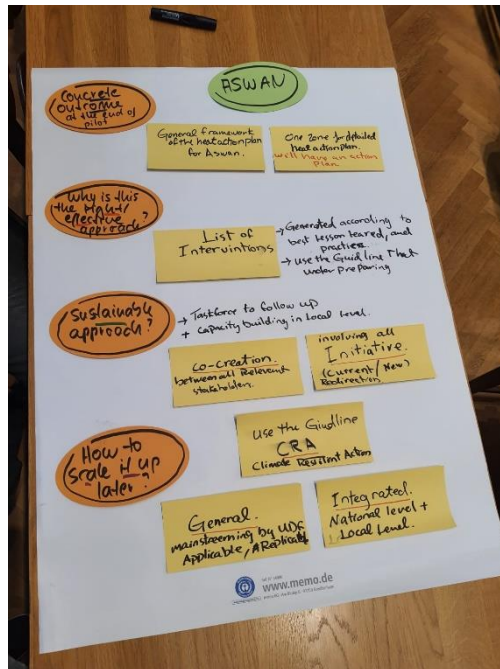 ASWAN
Concrete
outcome
at the end of
pilot
General framework
of the heat action plan
for Aswan.
One Zone for detailed
heat action plan.
will have an action
plan
Why is this
the
effective
approach?
List of
Interventions
→ Generated according to
best lesson leared, and
practice.
→ Use the Guidline That
under preparing
Sustainable
approach?
→ Taskforce to follow up
+ capacity building in Local Level.
Co-creation.
between all Relevant
stakeholders.
involving all
Initiative.
(Current/New)
Redirection
How to
scale it up
later?
Use the Giudline
CRA
Climate Resilient Action
General.
mainstreeming by
Applicable,
Integrated.
National level +
Local Level.
www.memo.de